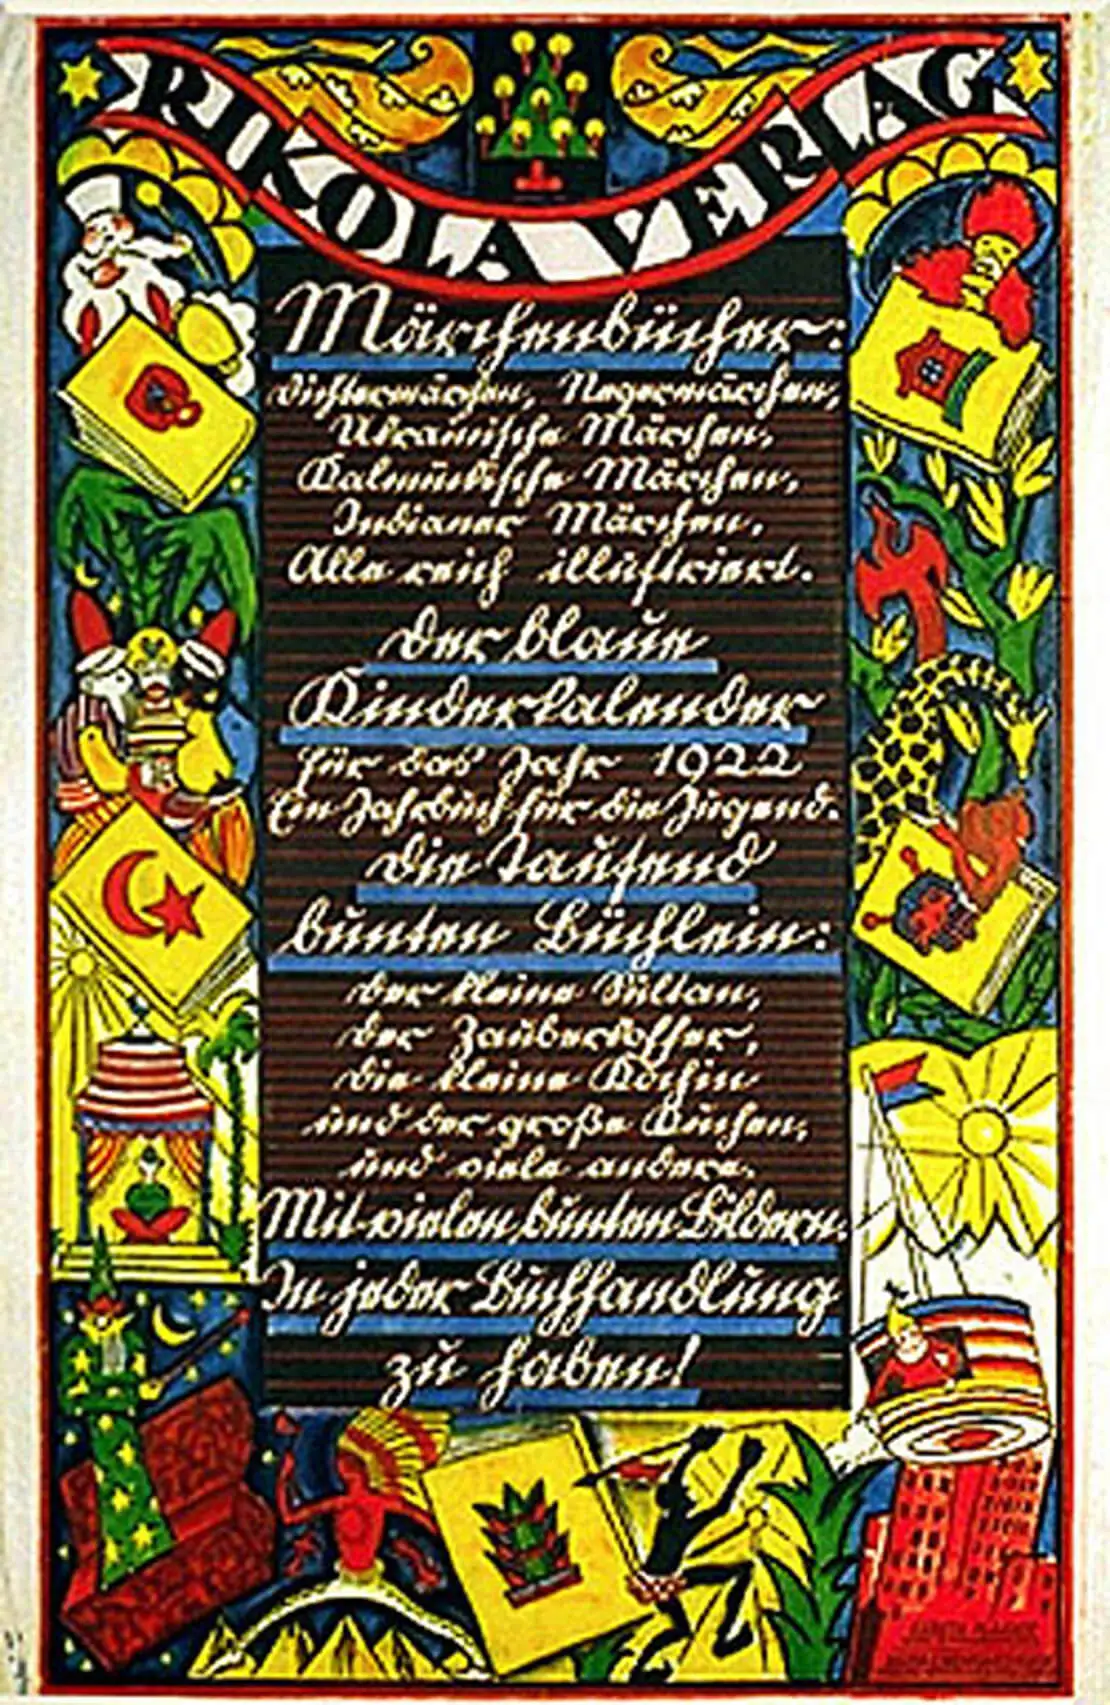 RIKOLA VERLAG
Märchenbücher:
Dichtermärchen, Negermärchen,
Ukrainische Märchen,
Kalmückische Märchen,
Indianer Märchen.
Alle reich illustriert.
Der blaue
Kinderkalender
für das Jahr 1922
Ein Jahrbuch für die Jugend.
Die Tausend
bunten Büchlein:
der kleine Sultan,
der Zauberkoffer,
die kleine Köchin
und der große Kuchen,
und viele andere.
Mit vielen bunten Bildern.
In jeder Buchhandlung
zu haben!